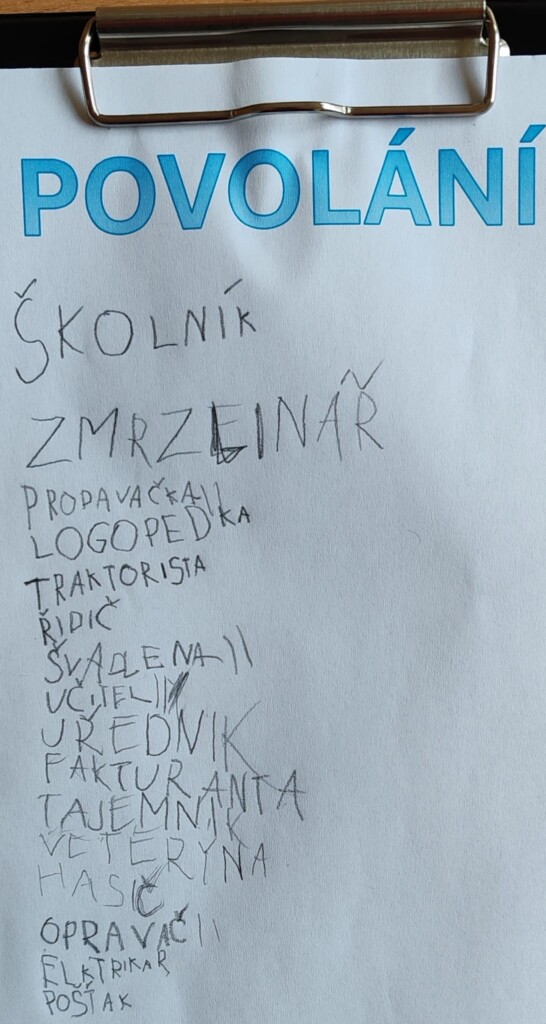 POVOLÁNÍ
ŠKOLNÍK
ZMRZLINÁŘ
PRODAVAČKA II
LOGOPEDKA
TRAKTORISTA
ŘIDIČ
ŠVADLENA II
UČITEL II
UŘEDNIK
FAKTURANTA
TAJEMNIK
VETERYNA
HASIČ
OPRAVÁČ II
ELKTRIKAR
POŠŤAK